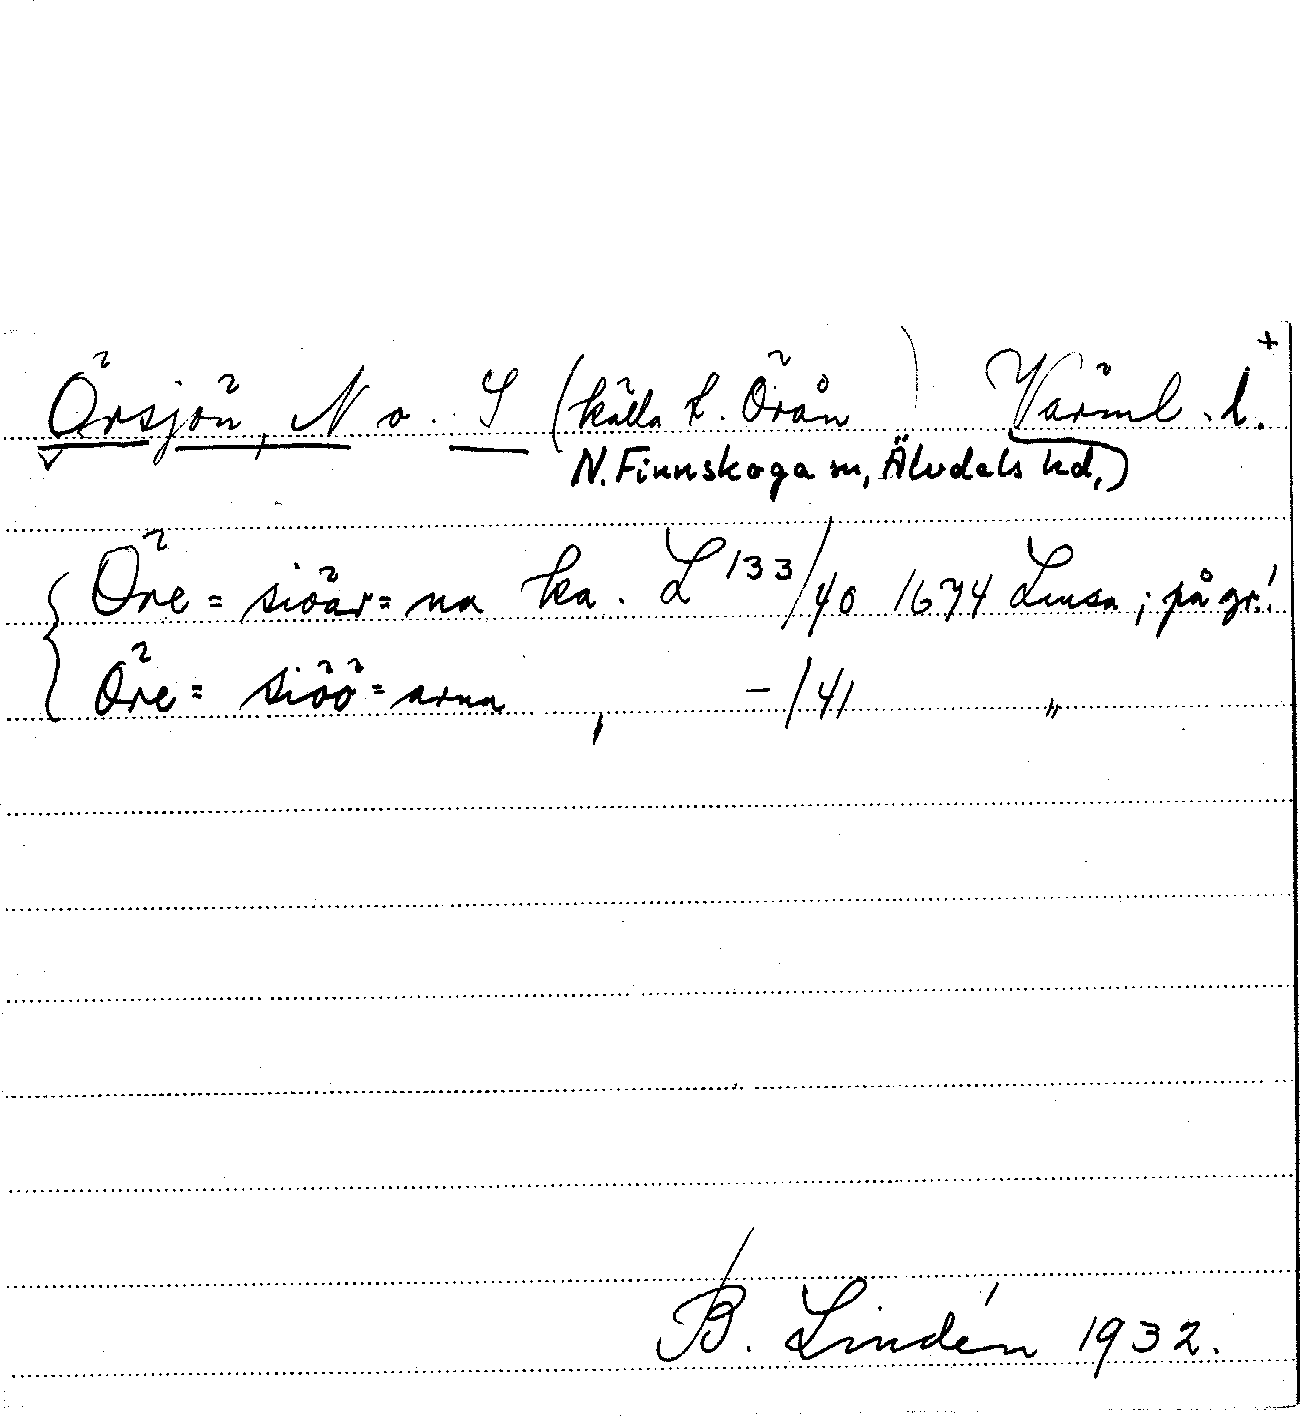 +
Örsjön, N o. S (källa t. Örån) Värml. l.
N. Finnskoga sn, Älvdals hd,)
Öre = siöar = na ka. L 133/40 1674 Lmsa; på gr.!
Öre = siöö = arna , -/41 "
B. Lindén 1932.